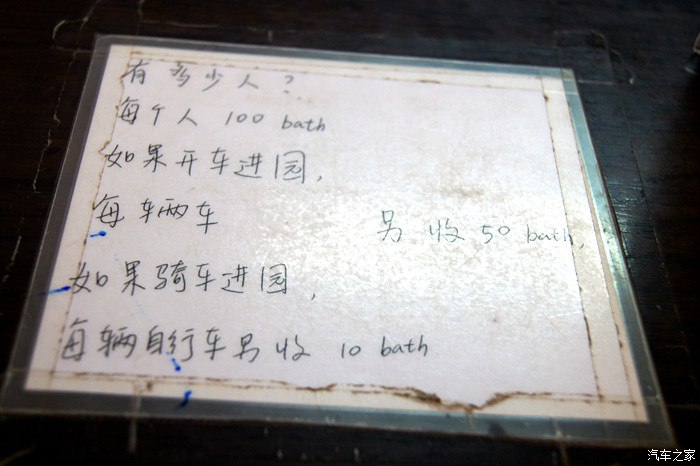 有多少人？
每个人 100 bath
如果开车进园，
每车两车 另收 50 bath，
如果骑车进园，
每辆自行车另收 10 bath
汽车之家